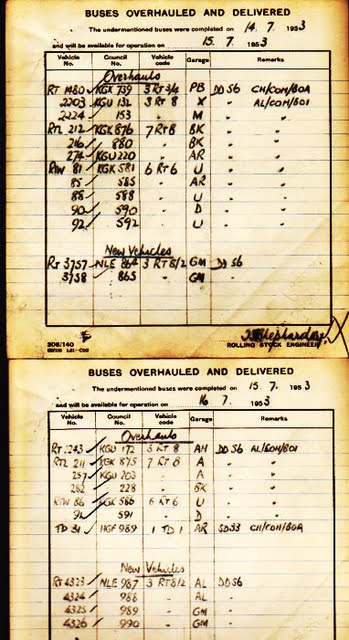 BUSES OVERHAULED AND DELIVERED
The undermentioned buses were completed on 14. 7. 1953
and will be available for operation on 15. 7. 1953
Vehicle No. Council No. Vehicle code Garage Remarks
Overhauls
RT 1480 KGK 739 3 RT 3/4 PB DD 56 CH/COM/BOA
2203 KGU 132 3 RT 8 X " AL/COM/BOI
2224 " 153 " M " "
RTL 212 KGK 876 7 RT 8 BK " "
216 " 880 " BK " "
274 KGU 220 " AR " "
RTW 81 KGK 581 6 RT 6 U " "
85 " 585 " AR " "
88 " 588 " U " "
90 " 590 " D " "
92 " 592 " U " "
New Vehicles
RT 3757 NLE 864 3 RT 8/2 GM DD 56
3758 " 865 " GM "
ROLLING STOCK ENGINEER
BUSES OVERHAULED AND DELIVERED
The undermentioned buses were completed on 15. 7. 1953
and will be available for operation on 16. 7. 1953
Vehicle No. Council No. Vehicle code Garage Remarks
Overhauls
RT 2243 KGU 172 3 RT 8 AH DD 56 AL/COM/BOI
RTL 211 KGK 875 7 RT 8 A " "
257 KGU 203 " A " "
282 " 228 " BK " "
RTW 86 KGK 586 6 RT 6 U " "
91 " 591 " D " "
TD 31 HGF 989 1 TD 1 AR SD33 CH/COM/BOA
New Vehicles
RT 4323 NLE 987 3 RT 8/2 AL DD 56
4324 " 988 " AL "
4325 " 989 " GM "
4326 " 990 " GM "